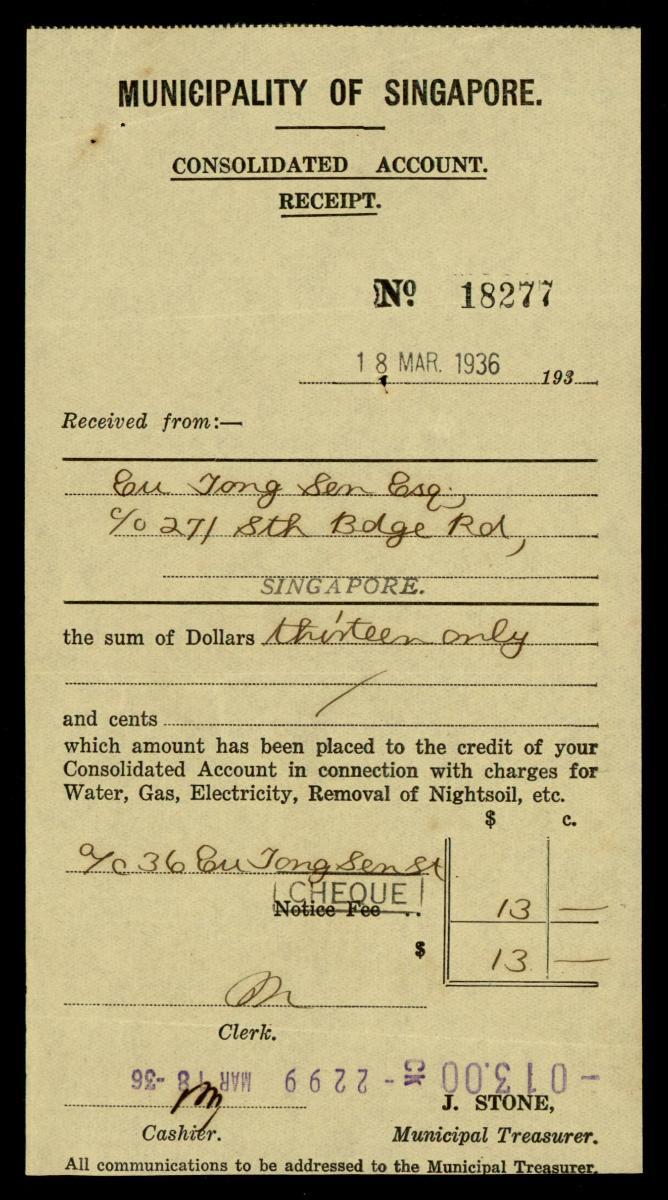 MUNICIPALITY OF SINGAPORE.
CONSOLIDATED ACCOUNT.
RECEIPT.
No. 18277
18 MAR. 1936 193
Received from:—
Eu Tong Sen Esq.,
c/o 271 Sth Bdge Rd,
SINGAPORE.
the sum of Dollars thirteen only
and cents /
which amount has been placed to the credit of your
Consolidated Account in connection with charges for
Water, Gas, Electricity, Removal of Nightsoil, etc.
$ c.
a/c 36 Eu Tong Sen St
CHEQUE
Notice Fee .. 13 —
$ 13 —
Clerk.
-013.00 CK - 2299 MAR 18 -36
J. STONE,
Cashier. Municipal Treasurer.
All communications to be addressed to the Municipal Treasurer.